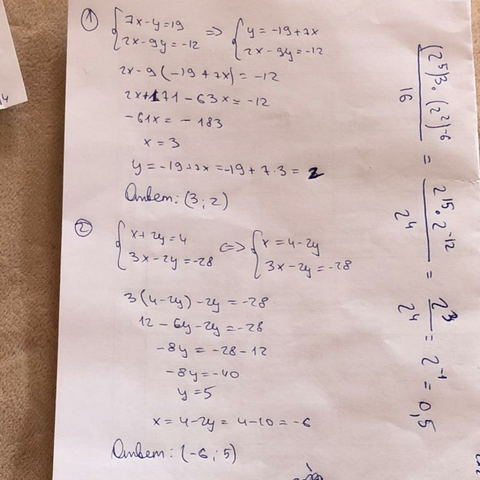 1 { 7x-y=19 => { y=-19+7x
2x-9y=-12 2x-9y=-12
2x-9(-19+7x)=-12
2x+171-63x=-12
-61x=-183
x=3
y=-19+7x=-19+7·3=2
Ответ: (3;2)
2 { x+2y=4 <=> { x=4-2y
3x-2y=-28 3x-2y=-28
3(4-2y)-2y=-28
12-6y-2y=-28
-8y=-28-12
-8y=-40
y=5
x=4-2y=4-10=-6
Ответ: (-6;5)
(2⁵)³·(2²)⁻⁶/16 = 2¹⁵·2⁻¹²/2⁴ = 2³/2⁴ = 2⁻¹ = 0,5